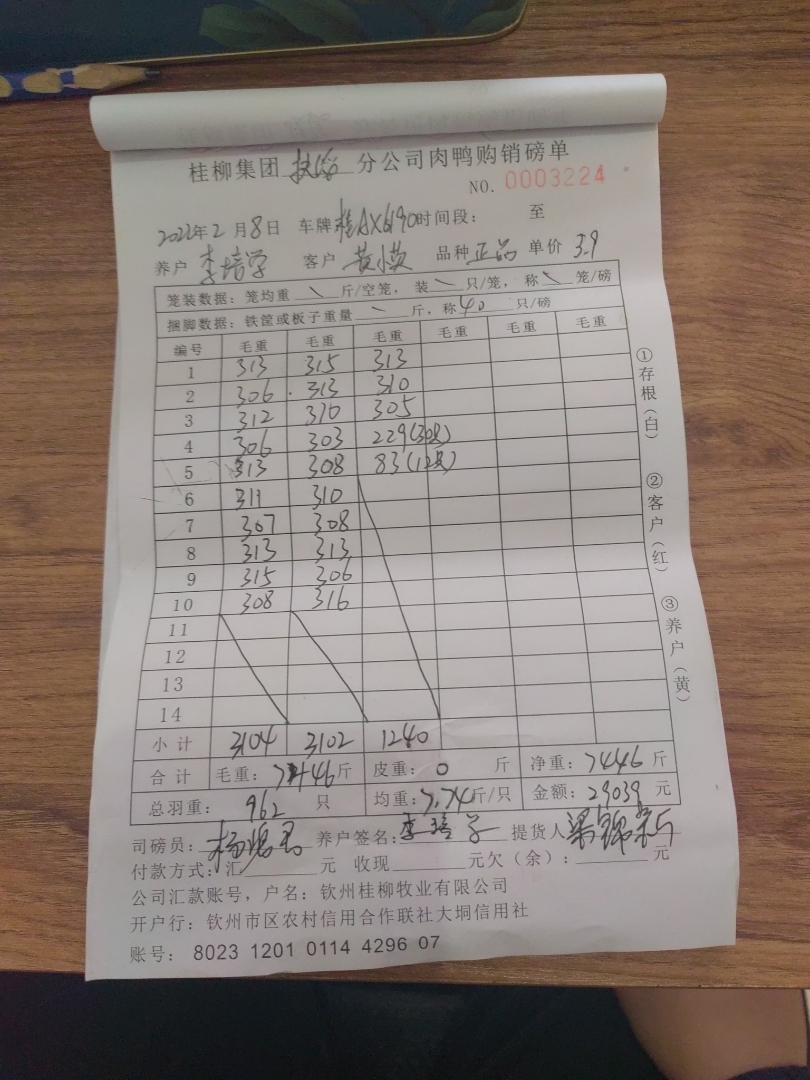 桂柳集团 分公司肉鸭购销磅单
NO. 0003224
2022年2月8日 车牌桂AX6190 时间段： 至
养户 李培学 客户 黄小英 品种 正品 单价 3.9
笼装数据：笼均重 \ 斤/空笼，装 \ 只/笼，称 \ 笼/磅
捆脚数据：铁筐或板子重量 \ 斤，称40 只/磅
编号 毛重 毛重 毛重 毛重 毛重 毛重
1 313 315 313
2 306 313 310
3 312 310 305
4 306 303 229(30只)
5 313 308 83(12只)
6 311 310
7 307 308
8 313 313
9 315 306
10 308 316
11
12
13
14
小计 3104 3102 1240
合计 毛重：7446斤 皮重：0 斤 净重：7446 斤
总羽重： 962 只 均重：7.74斤/只 金额：29039 元
司磅员： 养户签名：李培学 提货人
付款方式：汇 元 收现 元欠（余）： 元
公司汇款账号，户名：钦州桂柳牧业有限公司
开户行：钦州市区农村信用合作联社大垌信用社
账号： 8023 1201 0114 4296 07
①存根（白）
②客户（红）
③养户（黄）